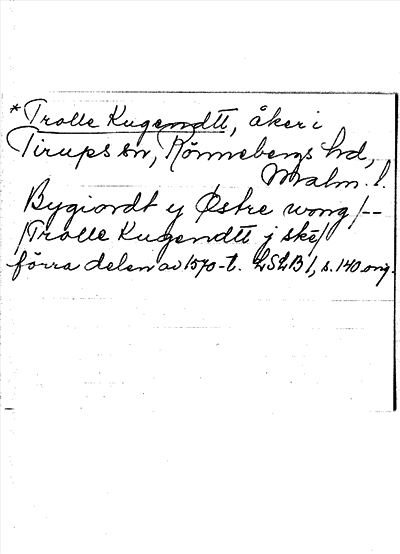 *Trolle Kugendtt, åker i
Tirups sn, Rönnebergs hd,
Malm. l.
Bygiordt y Østre wong /--
/Trolle Kugendtt j skē/
förra delen av 1570-t. LSLB 1, s. 140 orig.